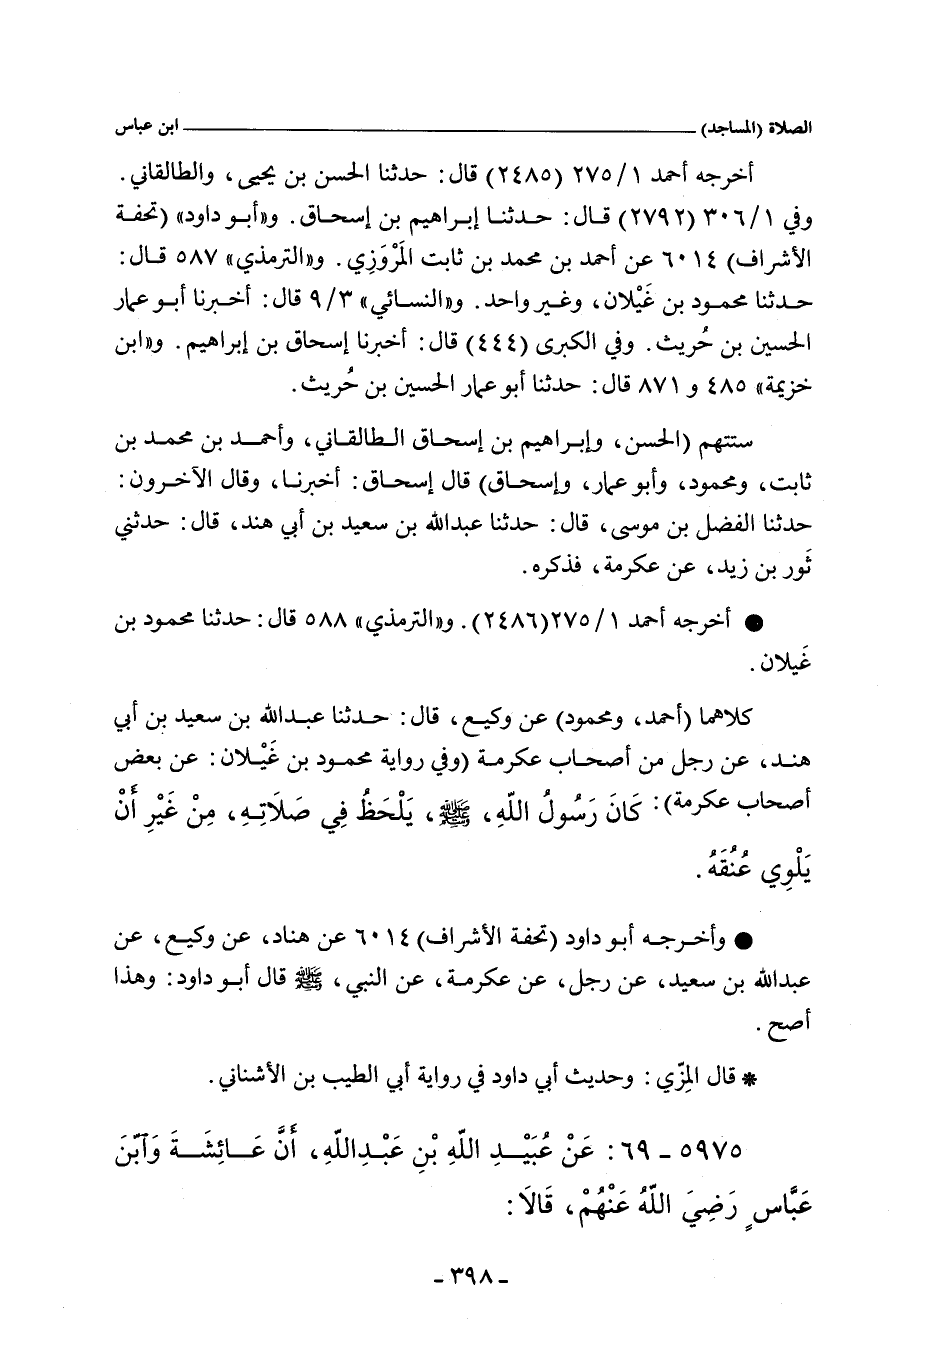 الصلاة (المساجد) ــــــــــــــــــــــــــــــــــــــــ ابن عباس
أخرجه أحمد ١/ ٢٧٥ (٢٤٨٥) قال: حدثنا الحسن بن يحيى، والطالقاني.
وفي ١/ ٣٠٦ (٢٧٩٢) قال: حدثنا إبراهيم بن إسحاق. و«أبو داود» (تحفة
الأشراف) ٦٠١٤ عن أحمد بن محمد بن ثابت المَرْوَزِي. و«الترمذي» ٥٨٧ قال:
حدثنا محمود بن غَيْلان، وغير واحد. و«النسائي» ٩/٣ قال: أخبرنا أبو عمار
الحسين بن حُريث. وفي الكبرى (٤٤٤) قال: أخبرنا إسحاق بن إبراهيم. و«ابن
خزيمة» ٤٨٥ و ٨٧١ قال: حدثنا أبو عمار الحسين بن حُريث.
ستتهم (الحسن، وإبراهيم بن إسحاق الطالقاني، وأحمد بن محمد بن
ثابت، ومحمود، وأبو عمار، وإسحاق) قال إسحاق: أخبرنا، وقال الآخرون:
حدثنا الفضل بن موسى، قال: حدثنا عبدالله بن سعيد بن أبي هند، قال: حدثني
ثَور بن زيد، عن عكرمة، فذكره.
● أخرجه أحمد ١/ ٢٧٥(٢٤٨٦). و«الترمذي» ٥٨٨ قال: حدثنا محمود بن
غَيلان.
كلاهما (أحمد، ومحمود) عن وكيع، قال: حدثنا عبدالله بن سعيد بن أبي
هند، عن رجل من أصحاب عكرمة (وفي رواية محمود بن غَيْلان: عن بعض
أصحاب عكرمة): كَانَ رَسُولُ اللّهِ، ﷺ، يَلْحَظُ فِي صَلَاتِهِ، مِنْ غَيْرِ أَنْ
يَلْوِي عُنُقَهُ.
● وأخرجه أبو داود (تحفة الأشراف) ٦٠١٤ عن هناد، عن وكيع، عن
عبدالله بن سعيد، عن رجل، عن عكرمة، عن النبي، ﷺ قال أبو داود: وهذا
أصح.
* قال المِزّي: وحديث أبي داود في رواية أبي الطيب بن الأشناني.
٥٩٧٥ ـ ٦٩: عَنْ عُبَيْدِ اللّهِ بْنِ عَبْدِاللّهِ، أَنَّ عَائِشَةَ وَآبْنَ
عَبَّاسٍ رَضِيَ اللّهُ عَنْهُمْ، قَالَا:
ـ ٣٩٨ ـ